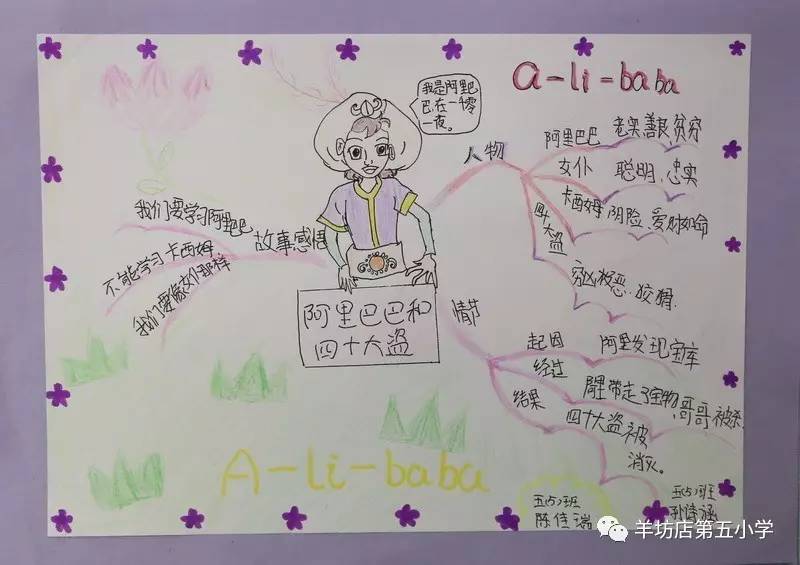 a-li-baba
我是阿里巴
巴,在一千零
一夜。
人物
阿里巴巴 老实善良,贫穷
女仆 聪明,忠实
卡西姆 阴险,爱财如命
四十大盗
穷凶极恶,狡猾
故事感悟
我们要学习阿里巴巴
不能学习卡西姆
我们要像女仆那样
阿里巴巴和
四十大盗
情节
起因 阿里发现宝库
经过 阿里带走了宝物,哥哥被杀
结果 四十大盗被
消灭。
A-li-baba
五(5)班
陈佳瑞
五(5)班
羊坊店第五小学